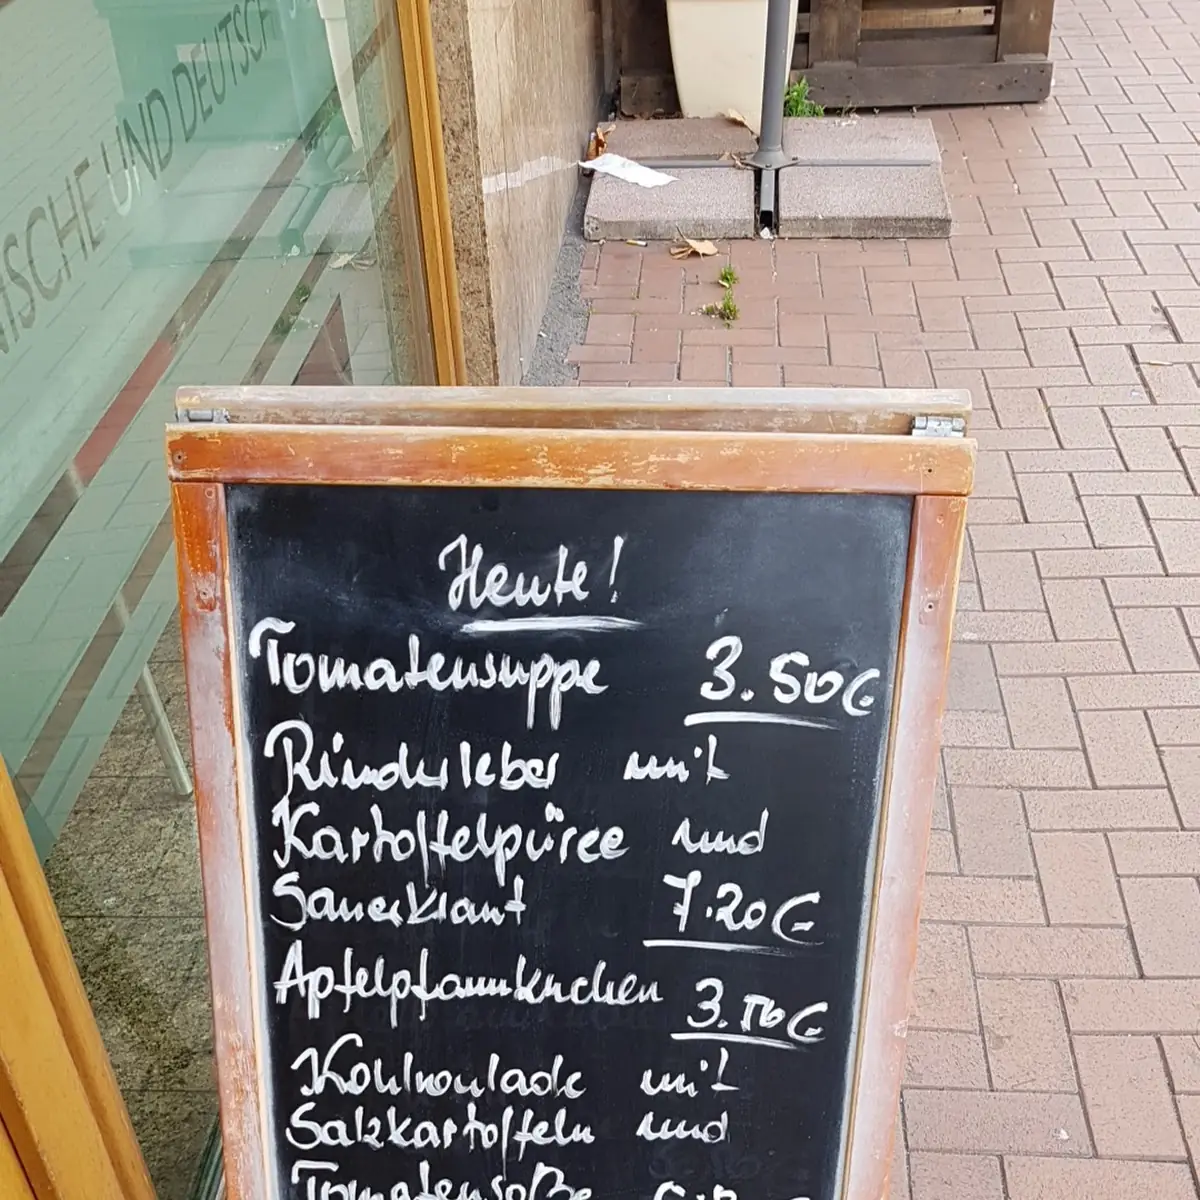 ISCHE UND DEUTSCH
Heute!
Tomatensuppe 3.50€
Rinderleber mit
Kartoffelpüree und
Sauerkraut 7.20€
Apfelpfannkuchen 3.50€
Kohlroulade mit
Salzkartoffeln und
Tomatensoße